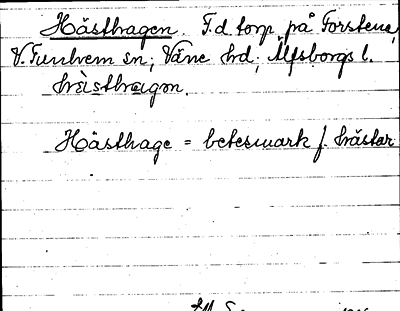 Hästhagen. F.d torp på Forstena,
V. Tunhem sn; Väne hd; Älfsborgs l.
hästhagen.
Hästhage = betesmark f. hästar